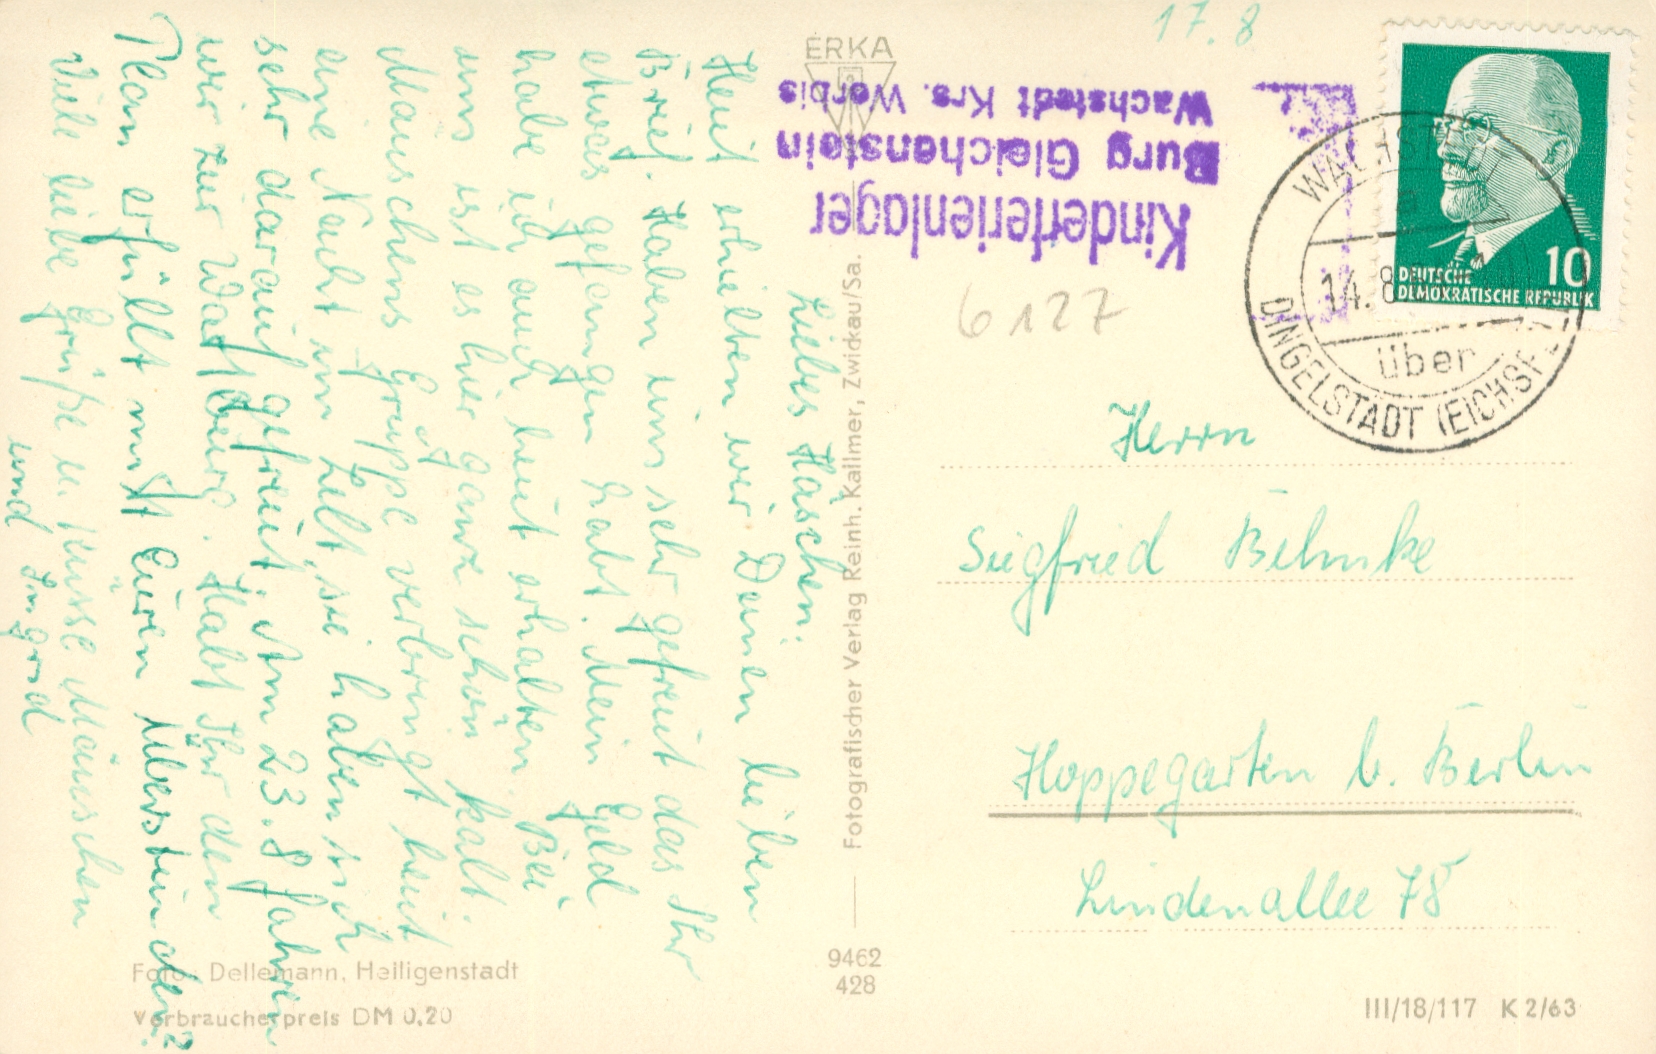 17. 8
ERKA
Kinderferienlager
Burg Gleichenstein
Wachstedt Krs. Worbis
10
DEUTSCHE
DEMOKRATISCHE REPUBLIK
WACHSTEDT
a
14. 8
über
DINGELSTÄDT (EICHSF
6127
Liebes Häschen!
Heut erhielten wir Deinen lieben
Brief. Haben uns sehr gefreut das Ihr
etwas gefangen habt. Mein Geld
habe ich auch heut erhalten. Bei
uns ist es hier ganz schön kalt.
Mäuschens Gruppe verbringt heut
eine Nacht im Zelt, sie haben sich
sehr darauf gefreut. Am 23.8 fahren
wir zur Wartburg. Habt Ihr den
Plan erfüllt mit Euren Überstunden?
Viele liebe Grüße u. Küsse Mäuschen
und Ingrid
Herrn
Siegfried Behnke
Hoppegarten b. Berlin
Lindenallee 78
Fotografischer Verlag Reinh. Kallmer, Zwickau/Sa.
9462
428
Foto: Dellemann, Heiligenstadt
Verbraucherpreis DM 0,20
III/18/117 K 2/63